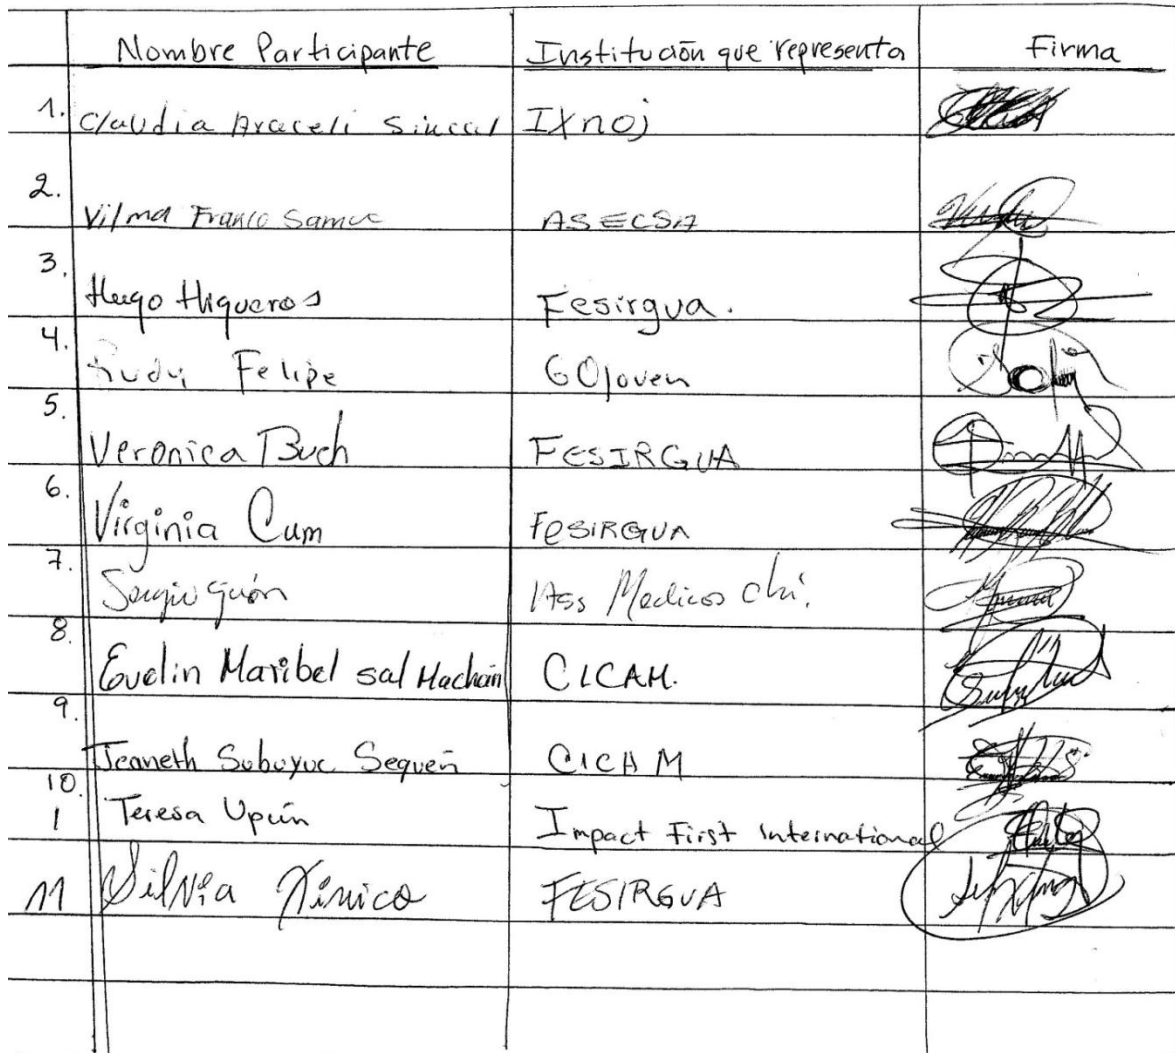 Nombre Participante Institución que representa Firma
1. Claudia Araceli Sincal Ixnoj
2. Vilma Franco Samuc ASECSA
3. Hugo Higueros Fesirgua.
4. Rudy Felipe GOJoven
5. Veronica Buch FESIRGUA
6. Virginia Cum FESIRGUA
7. Sergio Ass Medicos
8. Evelin Maribel sal Machán CICAM.
9. Jeaneth Subuyuc Sequén CICAM
10. Teresa Upún Impact First International
11 Silvia Xinico FESIRGUA